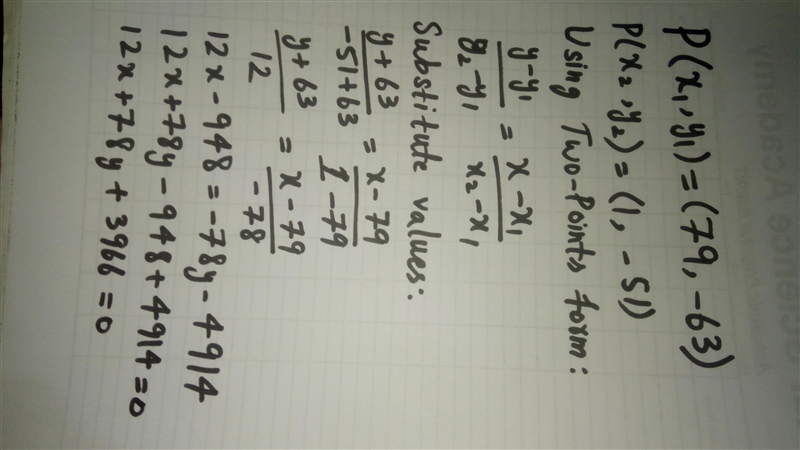 P(x₁,y₁)=(79,-63)
P(x₂,y₂)=(1,-51)
Using Two-Points form:
y-y₁/y₂-y₁ = x-x₁/x₂-x₁
Substitute values:
y+63/-51+63 = x-79/1-79
y+63/12 = x-79/-78
12x-948=-78y-4914
12x+78y-948+4914=0
12x+78y+3966=0
Science Academy